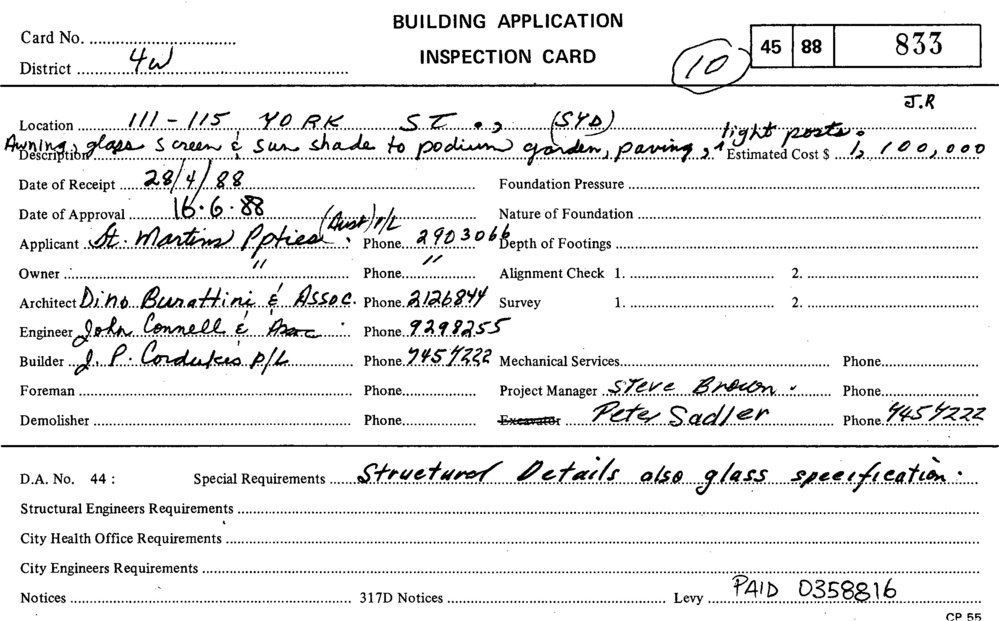 BUILDING APPLICATION
INSPECTION CARD
Card No.
District 4W
10
45 88 833
J.R
Location 111-115 YORK ST., (SYD)
Description Awning, glass screen & sun shade to podium garden, paving, light posts. Estimated Cost $ 1,100,000
Date of Receipt 28/4/88 Foundation Pressure
Date of Approval 16.6.88 Nature of Foundation
Applicant St. Martins Ppties (Aust) P/L Phone 2903066 Depth of Footings
Owner " Phone " Alignment Check 1. 2.
Architect Dino Burattini & Assoc. Phone 2126844 Survey 1. 2.
Engineer John Connell & Assoc Phone 9298255
Builder J. P. Cordukes P/L Phone 7457222 Mechanical Services Phone
Foreman Phone Project Manager Steve Brown. Phone
Demolisher Phone Excavator Peter Sadler Phone 7457222
D.A. No. 44 : Special Requirements Structural Details also glass specification.
Structural Engineers Requirements
City Health Office Requirements
City Engineers Requirements
Notices 317D Notices Levy PAID 0358816
CP 55